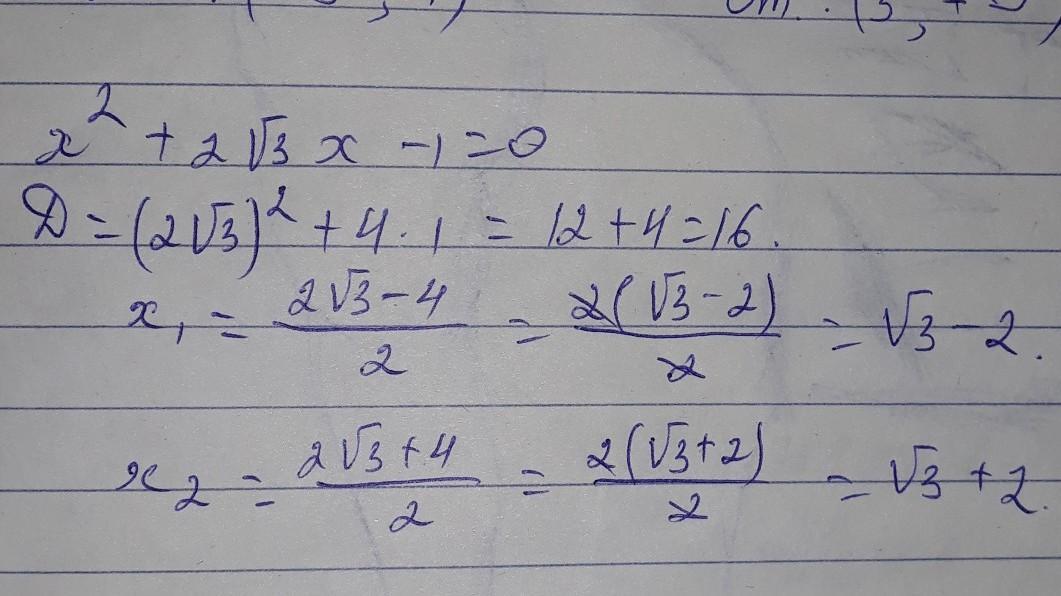 x² + 2√3 x - 1 = 0
D = (2√3)² + 4 · 1 = 12 + 4 = 16.
x₁ = (2√3 - 4)/2 = 2(√3 - 2)/2 = √3 - 2.
x₂ = (2√3 + 4)/2 = 2(√3 + 2)/2 = √3 + 2.